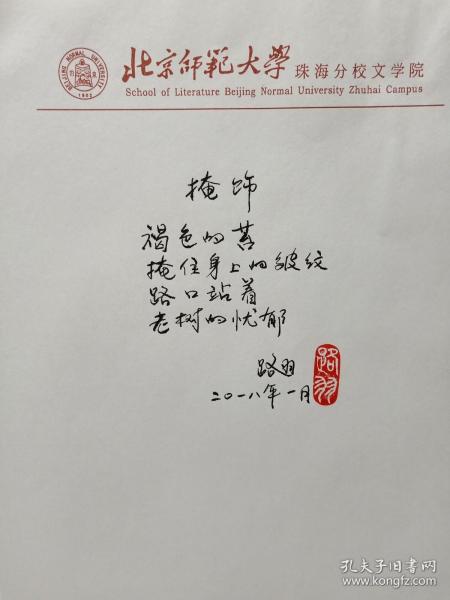 北京師範大學 珠海分校文学院
School of Literature Beijing Normal University Zhuhai Campus
BEIJING NORMAL UNIVERSITY
1902
掩饰
褐色的苔
掩住身上的皱纹
路口站着
老树的忧郁
路羽
二〇一八年一月
路羽
孔夫子旧书网
www.kongfz.com